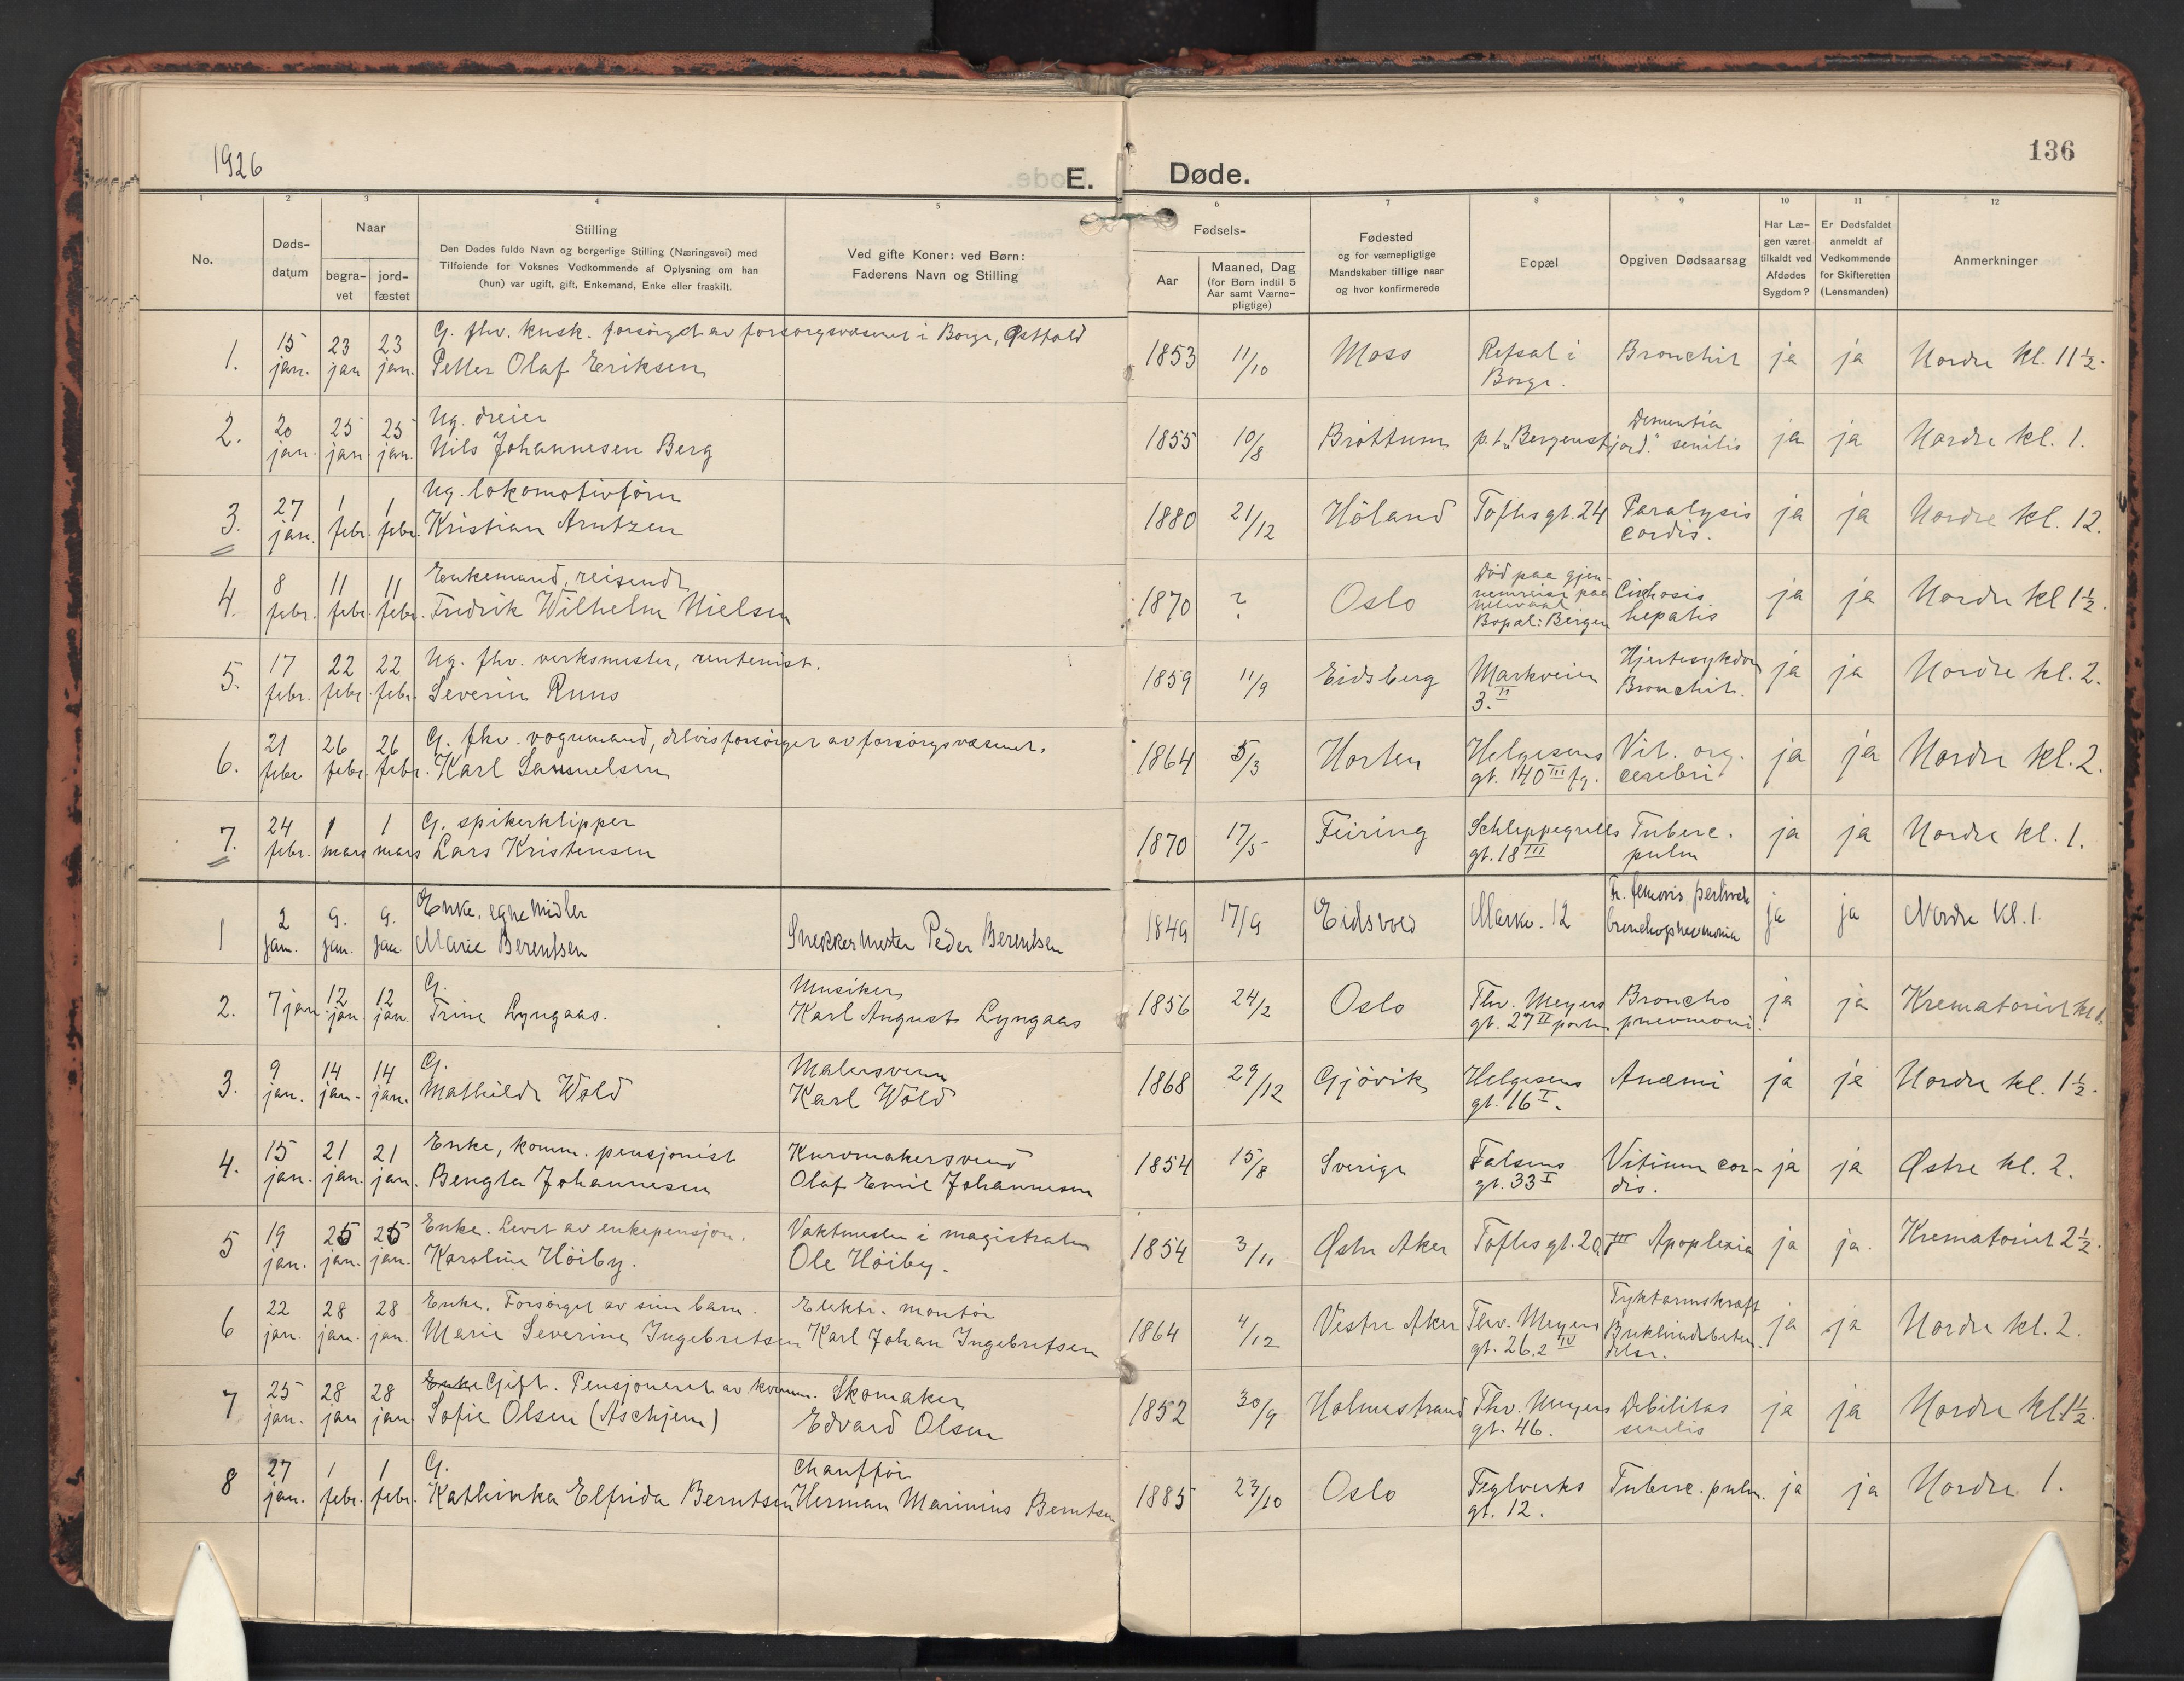 1926
E. Døde.
136
1 2 3 4 5 6 7 8 9 10 11 12
No.
Døds-
datum
Naar
begra-
vet
jord-
fæstet
Stilling
Den Dødes fulde Navn og borgerlige Stilling (Næringsvei) med
Tilføiende for Voksnes Vedkommende af Oplysning om han
(hun) var ugift, gift, Enkemand, Enke eller fraskilt.
Ved gifte Koner: ved Børn:
Faderens Navn og Stilling
Fødsels-
Aar
Maaned, Dag
(for Børn indtil 5
Aar samt Værne-
pligtige)
Fødested
og for værnepligtige
Mandskaber tillige naar
og hvor konfirmerede
Bopæl
Opgiven Dødsaarsag
Har Læ-
gen været
tilkaldt ved
Afdødes
Sygdom?
Er Dødsfaldet
anmeldt af
Vedkommende
for Skifteretten
(Lensmanden)
Anmerkninger
G. fhv. kusk. forsørget av forsorgsvæsenet i Borge, Østfold
1. 15 jan. 23 jan 23 jan. Petter Olaf Eriksen 1853 11/10 Moss Refsal i Borge. Bronchit ja ja Nordre kl. 11½.
Ug. dreier
2. 20 jan. 25 jan. 25 jan. Nils Johannesen Berg 1855 10/8 Brøttum p.t. "Bergenstjord." Dementia senilis ja ja Nordre kl. 1.
Ug. lokomotivfører
3. 27 jan. 1 febr. 1 febr. Kristian Arntzen 1880 21/12 Höland Toftes gt. 24 Paralysis cordis. ja ja Nordre kl. 12.
Enkemand, reisende
4. 8 febr. 11 febr. 11 febr. Fredrik Wilhelm Nielsen 1870 ? Oslo Död paa gjennemreise paa Bopæl: Bergen Cirrhosis hepatis ja ja Nordre kl 1½.
Ug. fhv. verksmester, rentenist.
5. 17 febr. 22 febr. 22 febr. Severin Ruus 1859 11/9 Eidsberg Markveien 3. II Hjertesykdom Bronchit. ja ja Nordre kl. 2.
G. fhv. vognmand, delvis forsörget av forsörgsvæsenet.
6. 21 febr 26 febr. 26 febr. Karl Samuelsen 1864 5/3 Horten Helgesens gt. 40 III fg. Vit. org. cerebri ja ja Nordre kl. 2.
G. spikerklipper
7. 24 febr. 1 mars 1 mars Lars Kristensen 1870 17/5 Feiring Schleppegrells gt. 18 III Tuberc. pulm ja ja Nordre kl. 1.
Enke, egne midler
1 2 jan. 9. jan. 9. jan. Marie Berentsen Snekkermester Peder Berentsen 1849 17/9 Eidsvold Markv. 12 Fr. femoris bronchopneumonia ja ja Nordre kl. 1.
G. Musiker
2. 7 jan 12 jan. 12 jan. Trine Lyngaas. Karl August Lyngaas 1856 24/2 Oslo Thv. Meyers gt. 27 II Broncho pneumoni. ja ja Krematoriet kl 1.
G. Malersvenn
3. 9 jan. 14 jan. 14 jan. Mathilde Wold Karl Wold 1868 29/12 Gjövik Helgesens gt. 16 I. Anæmi ja ja Nordre kl. 1½.
Enke, komm. pensjonist Kurvmakersvend
4. 15 jan. 21 jan. 21 jan. Bengta Johannesen Olaf Emil Johannesen 1854 15/8 Sverige Falsens gt. 33 I Vitium cordis. ja ja Østre kl. 2.
Enke. Levet av enkepensjon. Vaktmester i magistraten
5 19 jan. 25 jan. 25 jan. Karoline Höiby. Ole Höiby. 1854 3/11 Østre Aker Toftes gt. 20 III Apoplexia ja ja. Krematoriet 2½.
Enke. Forsörget av sine barn. Elektr. montör
6 22 jan. 28 jan. 28 jan. Marie Severine Ingebretsen Karl Johan Ingebretsen 1864 4/12 Vestre Aker Thv. Meyers gt. 26.2 IV Tyktarmskræft Bukhindebetendelse. ja ja Nordre kl. 2.
Enke Gift. Pensjoneret av komm. Skomaker
7 25 jan. 28 jan 28 jan Sofie Olsen (Aschjem) Edvard Olsen 1852 30/9 Holmestrand Thv. Meyers gt. 46. Debilitas senilis ja ja Nordre kl. 1½.
G. Chauffør
8 27 jan. 1 febr. 1 febr. Kathinka Elfrida Berntsen Herman Marinius Berntsen 1885 23/10 Oslo Teglverks gt. 12. Tuberc. pulm. ja ja Nordre 1.